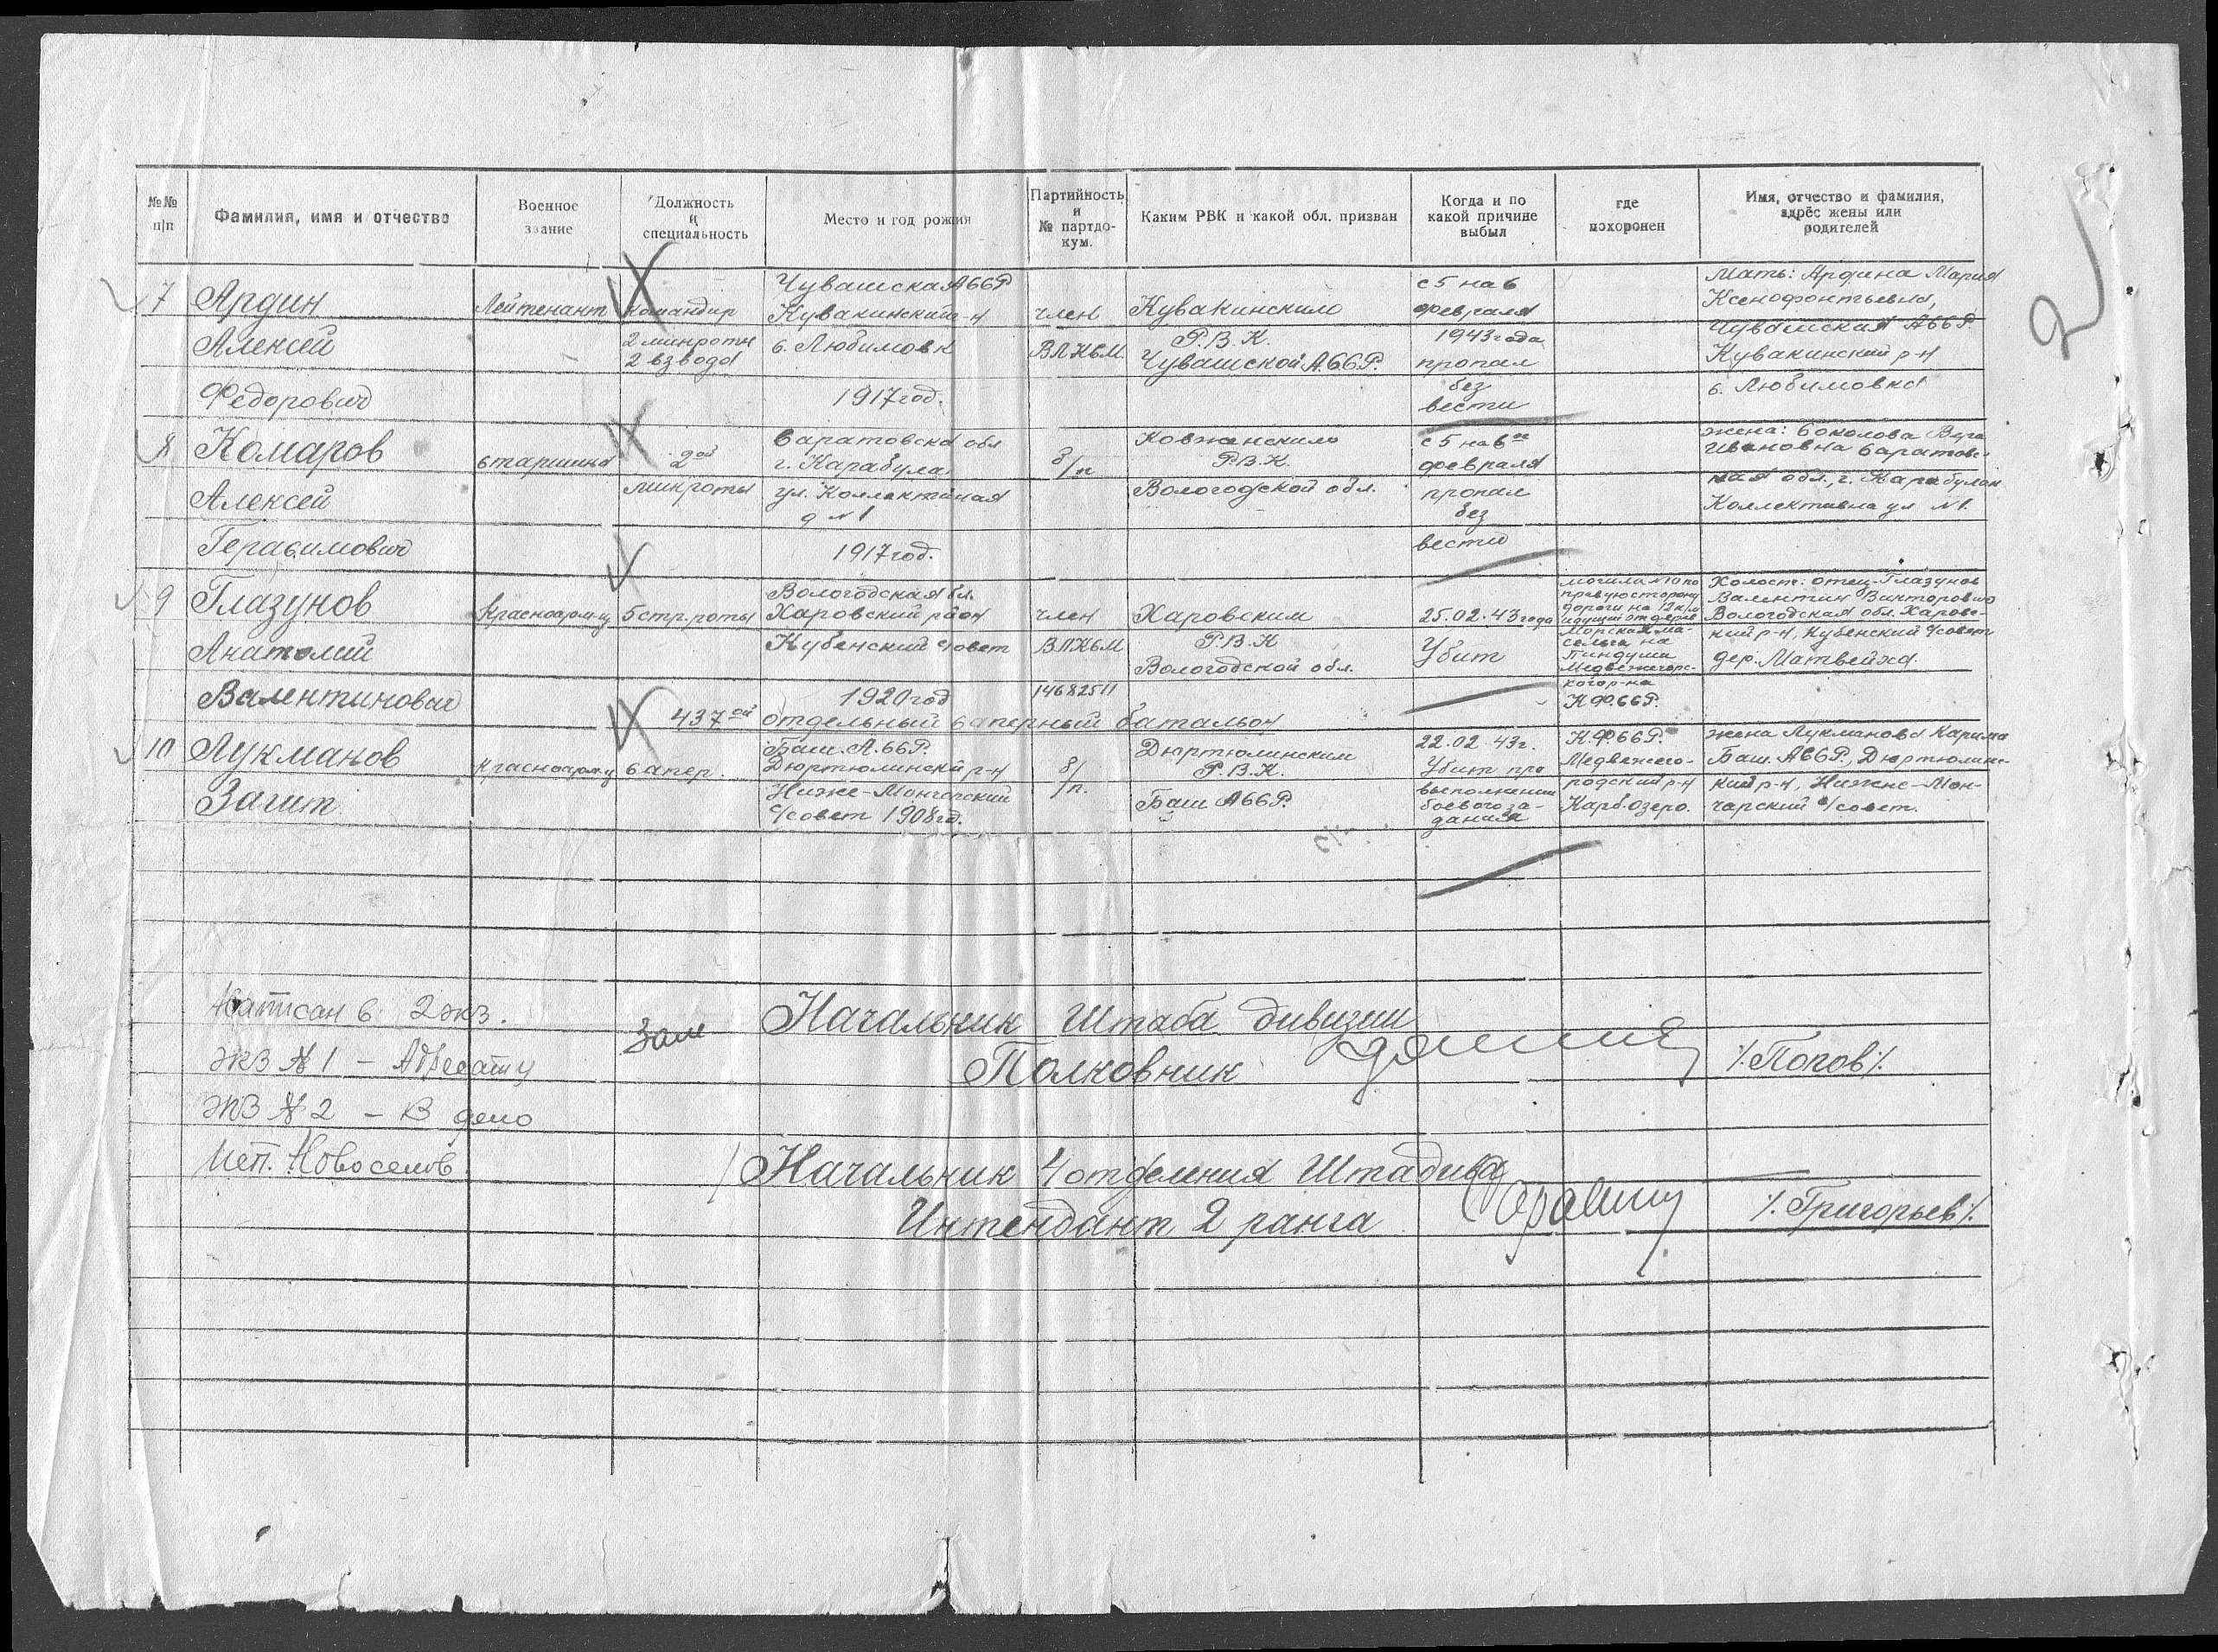 2
№№ п/п
Фамилия, имя и отчество
Военное звание
Должность и специальность
Место и год рожния
Партийность и № партдокум.
Каким РВК и какой обл. призван
Когда и по какой причине выбыл
где похоронен
Имя, отчество и фамилия, адрес жены или родителей
7
Ардин
Алексей
Федорович
Лейтенант
Командир
2 минроты
2 взвода
Чувашская АССР
Кувакинский р-н
с. Любимовк
1917 год.
член
ВЛКСМ.
Кувакинским
Р.В.К.
Чувашской А.ССР.
с 5 на 6
февраля
1943 года
пропал
без
вести
Мать: Ардина Мария
Ксенофонтьевна,
Чувашская АССР
Кувакинский р-н
с. Любимовка
8
Комаров
Алексей
Герасимович
старшина
2ой
минроты
Саратовска обл
г. Карабула
ул. Коллективная
д № 1
1917 год.
б/п
Р.В.К.
Вологодской обл.
с 5 на 6ое
февраля
пропал
без
вести
жена: Соколова Вера
Ивановна Саратовс-
кая обл., г. Карабулак
Коллективна ул № 1.
9
Глазунов
Анатолий
Валентинович
Красноарм-ц
5 стр. роты
Вологодская бл.
Харовский район
Кубенский с/совет
1920 год
член
ВЛКСМ
14682511
Харовским
Р.В.К
Вологодской обл.
25.02.43 года
Убит
могила № 10 по
правую сторону
дороги на 12 км
идущий от дерев
Морская Ма-
сельга на
Пиндуши
Медвежегорс-
кого р-на
КФССР.
Холост: отец Глазунов
Валентин Викторович
Вологодская обл. Харовс-
кий р-н, Кубенский с/совет
дер. Матвейха.
437ой отдельный саперный батальон
10
Лукманов
Загит
Красноарм-ц
сапер.
Баш. А.ССР.
Дюртюлинский р-н
Ниже-Мончарский
с/совет 1908 гд.
б/п.
Дюртюлинским
Р.В.К.
Баш АССР.
22.02.43 г.
Убит при
выполнении
боевого за-
дания
К.Ф.ССР.
Медвежего-
родский р-н
Карб. озеро.
жена Лукманова Карима
Баш. АССР, Дюртюлинс-
кий р-н, Нижне-Мон-
чарский с/совет.
Написан в 2 экз.
экз № 1 – Адресату
экз № 2 – в дело
исп. Новоселов
Зам Начальник Штаба дивизии
Полковник
/.Попов/.
Начальник 4 отделения Штадива
Интендант 2 ранга
/.Григорьев/.